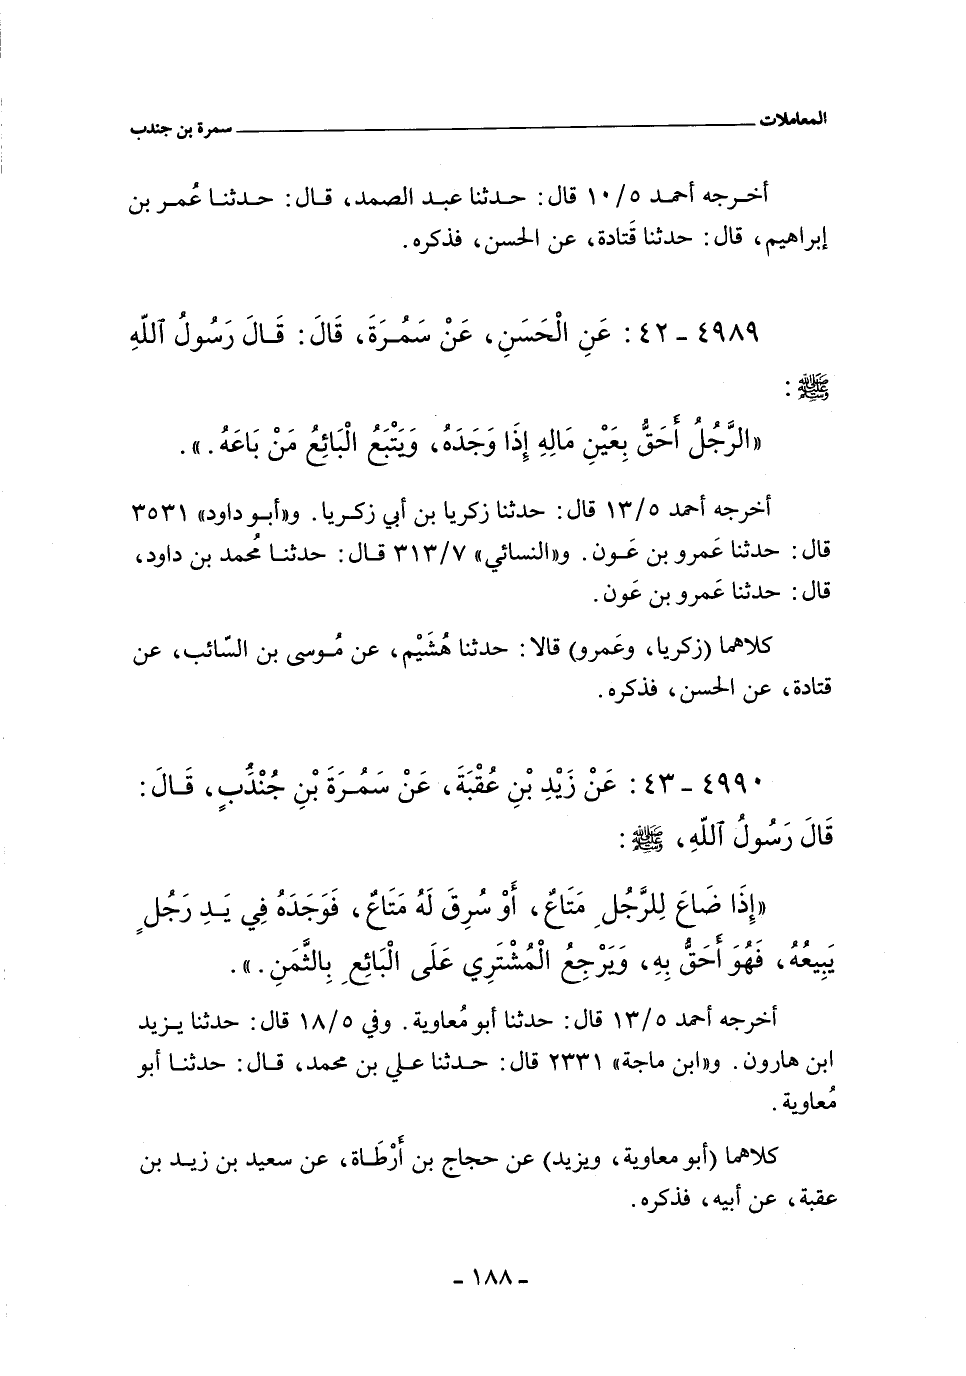 المعاملات ــــــــــــــــــــــــــــــــ سمرة بن جندب
أخرجه أحمد ٥/ ١٠ قال: حدثنا عبد الصمد، قال: حدثنا عُمر بن
إبراهيم، قال: حدثنا قَتادة، عن الحسن، فذكره.
٤٩٨٩ ـ ٤٢ : عَنِ الْحَسَنِ، عَنْ سَمُرَةَ، قَالَ: قَالَ رَسُولُ ٱللّهِ
ﷺ :
«الرَّجُلُ أَحَقُّ بِعَيْنِ مَالِهِ إِذَا وَجَدَهُ، وَيَتْبَعُ الْبَائِعُ مَنْ بَاعَهُ.».
أخرجه أحمد ٥/ ١٣ قال: حدثنا زكريا بن أبي زكريا. و«أبو داود» ٣٥٣١
قال: حدثنا عَمرو بن عَون. و«النسائي» ٧/ ٣١٣ قال: حدثنا مُحمد بن داود،
قال: حدثنا عَمرو بن عَون.
كلاهما (زكريا، وعَمرو) قالا: حدثنا هُشَيْم، عن مُوسى بن السّائب، عن
قتادة، عن الحسن، فذكره.
٤٩٩٠ ـ ٤٣ : عَنْ زَيْدِ بْنِ عُقْبَةَ، عَنْ سَمُرَةَ بْنِ جُنْدُبٍ، قَالَ:
قَالَ رَسُولُ ٱللّهِ، ﷺ :
«إِذَا ضَاعَ لِلرَّجُلِ مَتَاعٌ، أَوْ سُرِقَ لَهُ مَتَاعٌ، فَوَجَدَهُ فِي يَدِ رَجُلٍ
يَبِيعُهُ، فَهُوَ أَحَقُّ بِهِ، وَيَرْجِعُ الْمُشْتَرِي عَلَى الْبَائِعِ بِالثَّمَنِ.».
أخرجه أحمد ٥/ ١٣ قال: حدثنا أبو مُعاوية. وفي ٥/ ١٨ قال: حدثنا يزيد
ابن هارون. و«ابن ماجة» ٢٣٣١ قال: حدثنا علي بن محمد، قال: حدثنا أبو
مُعاوية.
كلاهما (أبو معاوية، ويزيد) عن حجاج بن أَرْطَاة، عن سعيد بن زيد بن
عقبة، عن أبيه، فذكره.
ـ ١٨٨ ـ